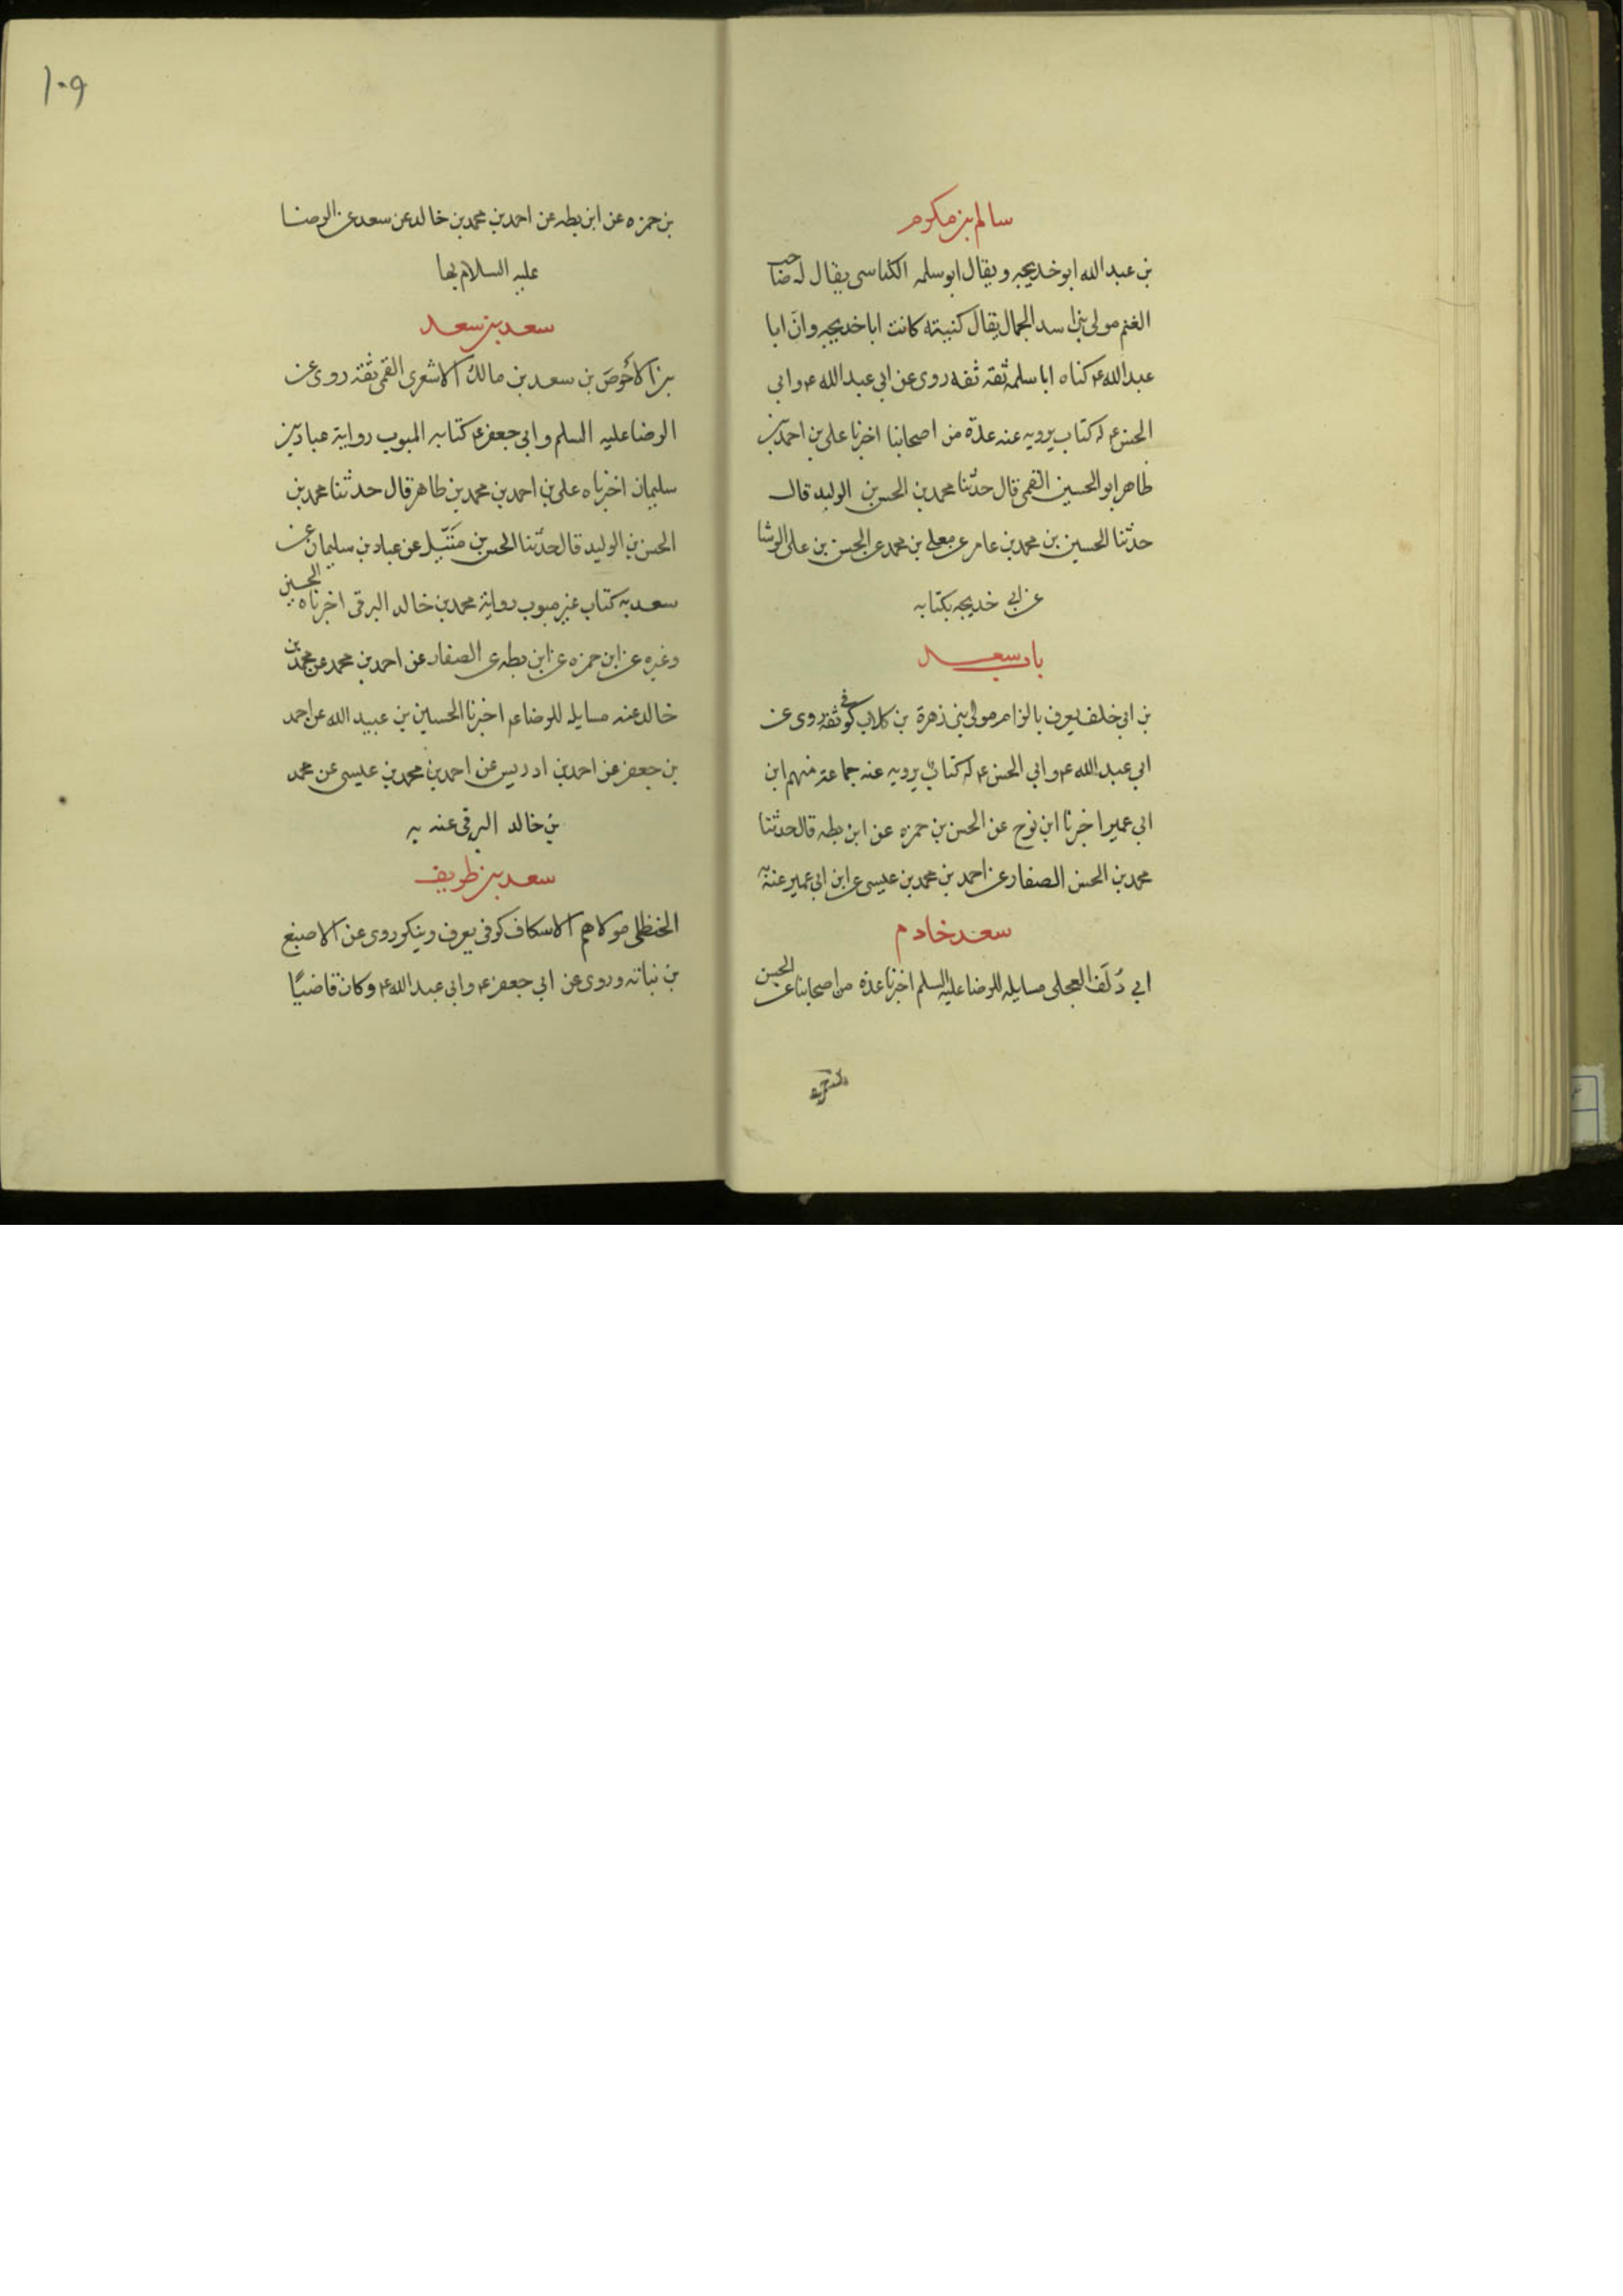 سالم بن مكرم
بن عبد الله ابو خديجه ويقال ابو سلمه الكناسى يقال له صاحب
الغنم مولى بنى اسد الجمال يقال كنيته كانت ابا خديجه وان ابا
عبد الله ع كناه ابا سلمه ثقة ثقه روى عن ابى عبد الله ع وابى
الحسن ع له كتاب يرويه عنه عدة من اصحابنا اخبرنا على بن احمد بن
طاهر ابو الحسين القمى قال حدثنا محمد بن الحسن بن الوليد قال
حدثنا الحسين بن محمد بن عامر عن معلى بن محمد عن الحسن بن على الوشا
عن ابى خديجه بكتابه
باب سعد
بن ابى خلف يعرف بالزام مولى بنى زهرة بن كلاب كوفى ثقة روى عن
ابى عبد الله ع وابى الحسن ع له كتاب يرويه عنه جماعة منهم ابن
ابى عمير اخبرنا ابن نوح عن الحسن بن حمزه عن ابن بطه قال حدثنا
محمد بن الحسن الصفار عن احمد بن محمد بن عيسى عن ابن ابى عمير عنه به
سعد خادم
ابى دُلَف العجلى مسايله للرضا عليه السلم اخبرنا عدة من اصحابنا عن الحسن
١٠٩
بن حمزه عن ابن بطه عن احمد بن محمد بن خالد عن سعد عن الرضا
عليه السلام بها
سعد بن سعد
بن الأحوص بن سعد بن مالك الاشعرى القمى ثقة روى عن
الرضا عليه السلم وابى جعفر ع كتابه المبوب رواية عباد بن
سليمان اخبرناه على بن احمد بن محمد بن طاهر قال حدثنا محمد بن
الحسن بن الوليد قال حدّثنا الحسن بن مَتّيل عن عباد بن سليمان عن
سعد به كتاب غير مبوب رواية محمد بن خالد البرقى اخبرناه الحسين
وغيره عن ابن حمزه عن ابن بطه عن الصفار عن احمد بن محمد عن محمد بن
خالد عنه مسايله للرضا ع اخبرنا الحسين بن عبيد الله عن احمد
بن جعفر عن احمد بن ادريس عن احمد بن محمد بن عيسى عن محمد
بن خالد البرقى عنه به
سعد بن طريف
الحنظلى مولاهم الاسكاف كوفى يعرف وينكر روى عن الاصبغ
بن نباته وروى عن ابى جعفر ع وابى عبد الله ع وكان قاضيًا